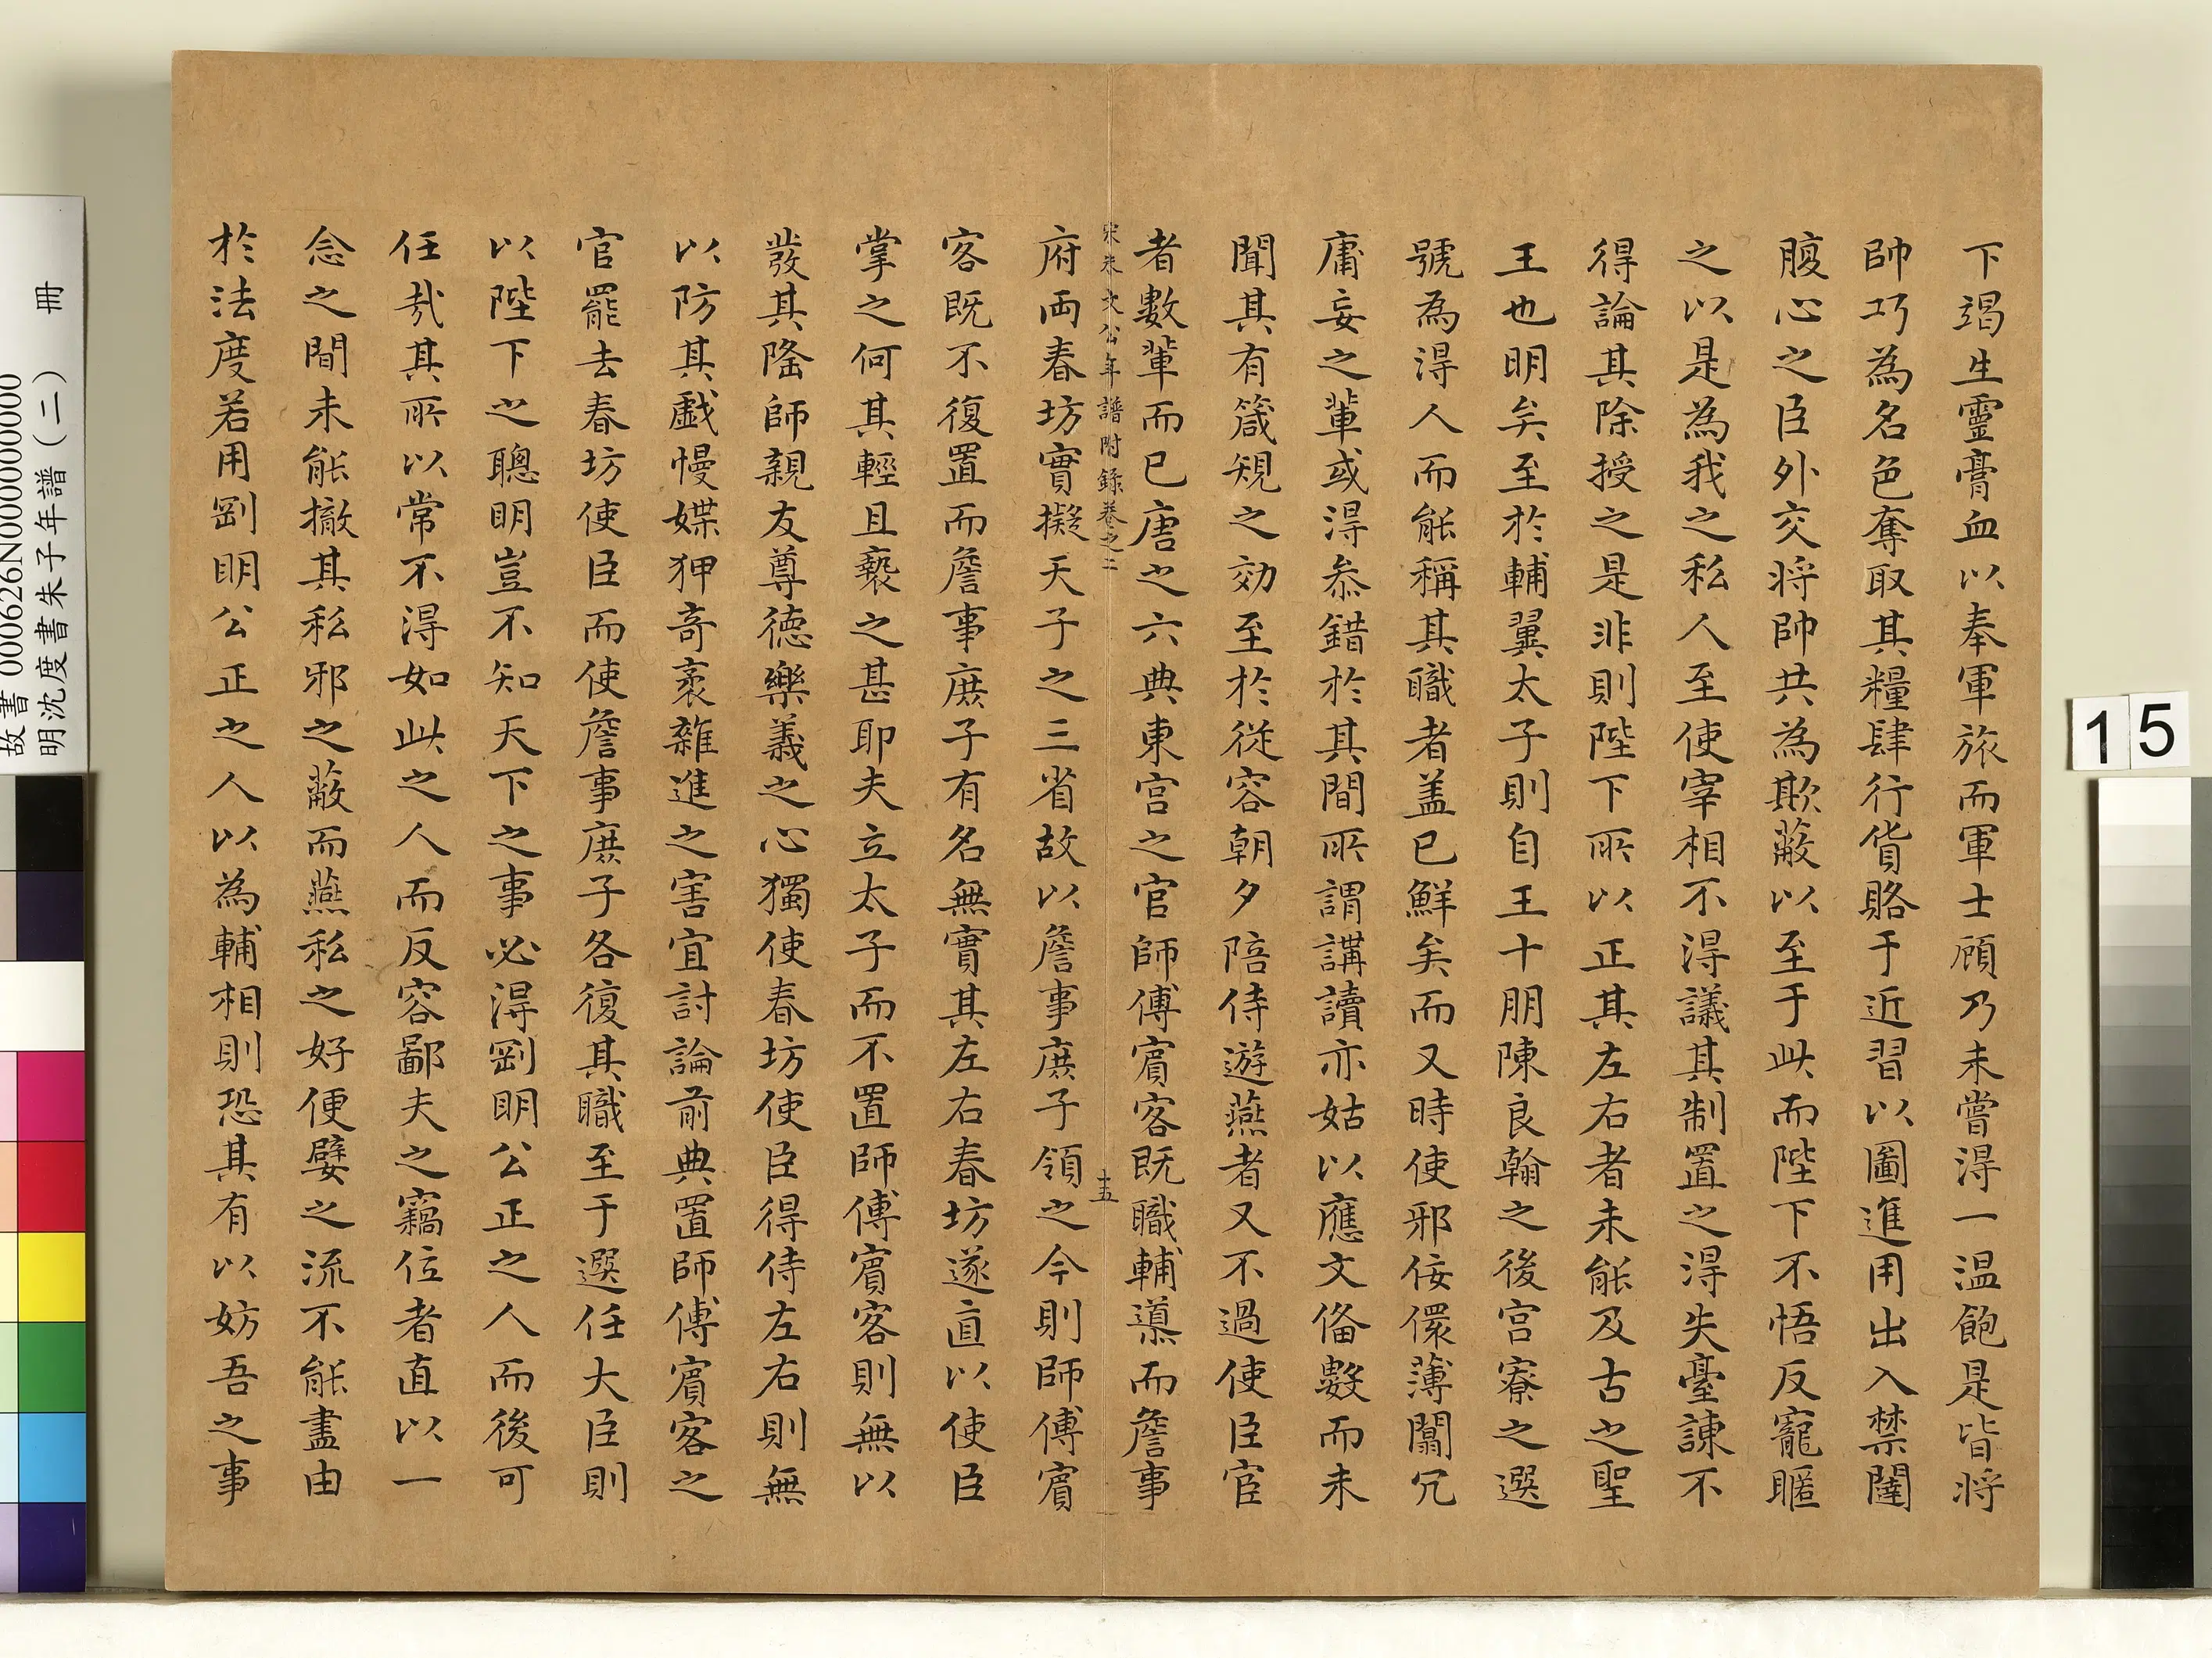 下竭生靈膏血以奉軍旅而軍士顧乃未嘗得一温飽是皆將
帥巧為名色奪取其糧肆行貨賂于近習以圖進用出入禁闥
腹心之臣外交將帥共為欺蔽以至于此而陛下不悟反寵暱
之以是為我之私人至使宰相不得議其制置之得失臺諫不
得論其除授之是非則陛下所以正其左右者未能及古之聖
王也明矣至於輔翼太子則自王十朋陳良翰之後宫寮之選
號為得人而能稱其職者盖已鮮矣而又時使邪佞儇薄闒冗
庸妄之輩或得叅錯於其間所謂講讀亦姑以應文俻數而未
聞其有箴規之効至於從容朝夕陪侍遊燕者又不過使臣宦
者數輩而已唐之六典東宫之官師傅賓客既職輔導而詹事
宋朱文公年譜附錄卷之二
十五
府兩春坊實擬天子之三省故以詹事庶子領之今則師傅賓
客既不復置而詹事庶子有名無實其左右春坊遂直以使臣
掌之何其輕且褻之甚耶夫立太子而不置師傅賓客則無以
發其隆師親友尊德樂義之心獨使春坊使臣得侍左右則無
以防其戲慢媟狎奇袤雜進之害宜討論前典置師傅賓客之
官罷去春坊使臣而使詹事庶子各復其職至于選任大臣則
以陛下之聰明豈不知天下之事必得剛明公正之人而後可
任㢤其所以常不得如此之人而反容鄙夫之竊位者直以一
念之間未能撤其私邪之蔽而燕私之好便嬖之流不能盡由
於法度若用剛明公正之人以為輔相則恐其有以妨吾之事
故書000626N000000000
明沈度書朱子年譜（二）　冊
15